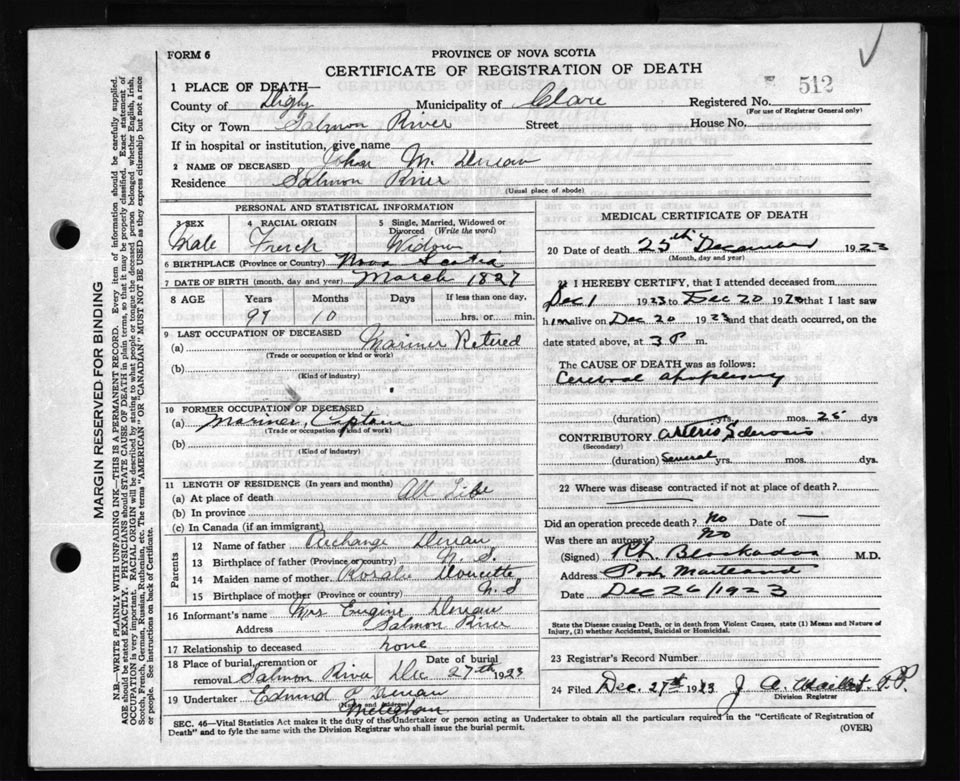 FORM 6
PROVINCE OF NOVA SCOTIA
CERTIFICATE OF REGISTRATION OF DEATH
512
1 PLACE OF DEATH—
County of Digby Municipality of Clare Registered No.
(For use of Registrar General only)
City or Town Salmon River Street House No.
If in hospital or institution, give name
2 NAME OF DECEASED John M. Deveau
Residence Salmon River
(Usual place of abode)
PERSONAL AND STATISTICAL INFORMATION
3 SEX 4 RACIAL ORIGIN 5 Single, Married, Widowed or Divorced (Write the word)
Male French Widow
6 BIRTHPLACE (Province or Country) Nova Scotia
7 DATE OF BIRTH (month, day and year) March 1827
8 AGE Years Months Days If less than one day,
97 10 hrs. or min.
9 LAST OCCUPATION OF DECEASED
(a) Mariner Retired
(Trade or occupation or kind of work)
(b)
(Kind of industry)
10 FORMER OCCUPATION OF DECEASED
(a) Mariner, Captain
(Trade or occupation or kind of work)
(b)
(Kind of industry)
11 LENGTH OF RESIDENCE (In years and months)
(a) At place of death All Life
(b) In province
(c) In Canada (if an immigrant)
Parents
12 Name of father Archange Deveau
13 Birthplace of father (Province or country) N. S.
14 Maiden name of mother Rosalie Doucette
15 Birthplace of mother (Province or country) N. S
16 Informant's name Mrs Eugine Deveau
Address Salmon River
17 Relationship to deceased none
18 Place of burial, cremation or removal Salmon River Date of burial Dec 27th 1923
19 Undertaker Edmund P. Deveau
(Name and Address)
Meteghan
MEDICAL CERTIFICATE OF DEATH
20 Date of death 25th December 1923
(Month, day and year)
21 I HEREBY CERTIFY, that I attended deceased from
Dec 1 1923 to Dec 20 1923 that I last saw
him alive on Dec 20 1923 and that death occurred, on the
date stated above, at 3 P m.
The CAUSE OF DEATH was as follows:
Cerebral apoplexy
(duration) yrs. mos. 25 dys
CONTRIBUTORY Arterio Sclerosis
(Secondary)
(duration) Several yrs. mos. dys.
22 Where was disease contracted if not at place of death?
Did an operation precede death? No Date of —
Was there an autopsy? No
(Signed) M.D.
Address Port Maitland
Date Dec 26/1923
State the Disease causing Death, or in death from Violent Causes, state (1) Means and Nature of Injury, (2) whether Accidental, Suicidal or Homicidal.
23 Registrar's Record Number
24 Filed Dec. 27th 1923 J. A.
Division Registrar
SEC. 46—Vital Statistics Act makes it the duty of the Undertaker or person acting as Undertaker to obtain all the particulars required in the "Certificate of Registration of
Death" and to fyle the same with the Division Registrar who shall issue the burial permit. (OVER)
MARGIN RESERVED FOR BINDING
N.B.—WRITE PLAINLY WITH UNFADING INK—THIS IS A PERMANENT RECORD. Every item of information should be carefully supplied.
AGE should be stated EXACTLY. PHYSICIANS should STATE CAUSE OF DEATH in plain terms, so that it may be properly classified. Exact statement of
OCCUPATION is very important. RACIAL ORIGIN will be described by stating to what people or tongue the deceased person belonged whether English, Irish,
Scotch, French, German, Russian, Ruthenian, etc. The terms "AMERICAN" or "CANADIAN" MUST NOT BE USED as they express citizenship but not a race
or people. See instructions on back of Certificate.